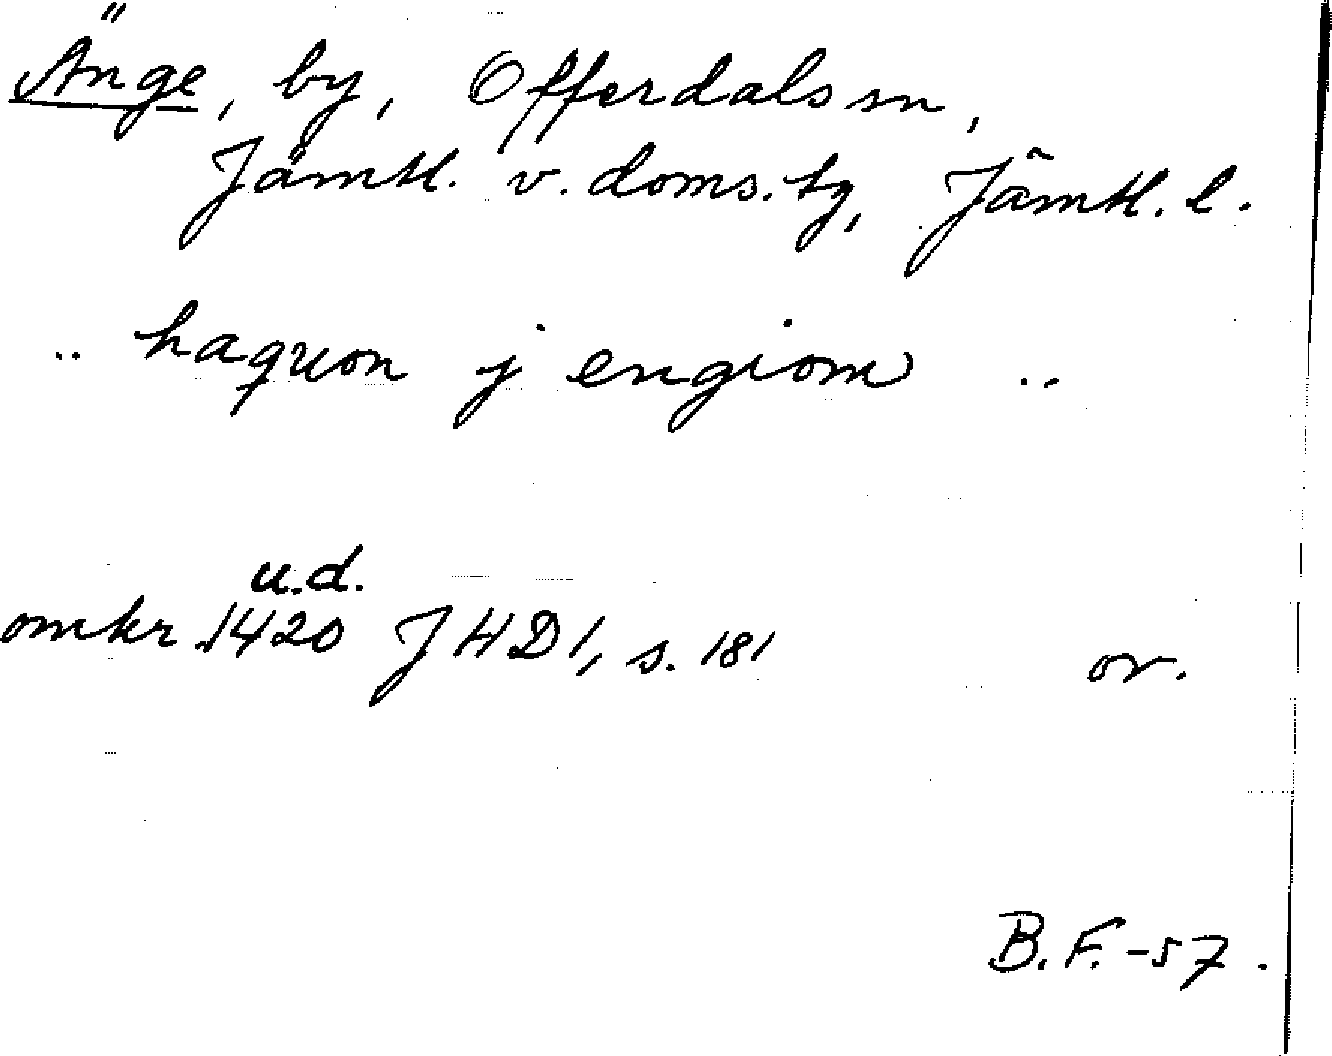 Änge, by, Offerdals sn,
Jämtl. v. doms. tg, Jämtl. l.
.. haquon j engiom ..
u.d.
omkr. 1420 JHD 1, s. 181 or.
B.F. -57.